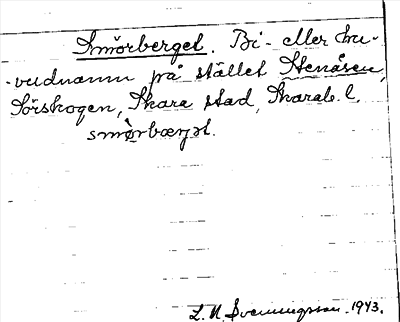 Smörberget. Bi- eller hu-
-vudnamn på stället Stenåsen,
Sörskogen, Skara stad, Skarab. l.
smörbærjət.
L. N. Svenungsson. 1943.